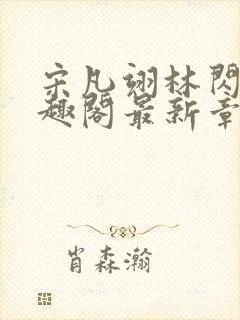 宋凡翊林閃
趣閣最新章
肖森瀚